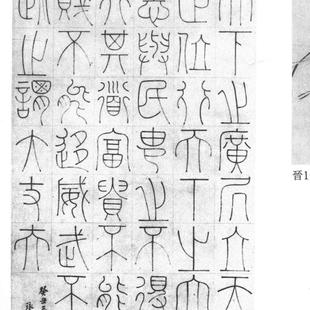 天下之廣居立天
正位行天下之大
志與民由之不得
行其道富貴不能
賤不能移威武不
此之謂大丈夫
癸丑
晉1